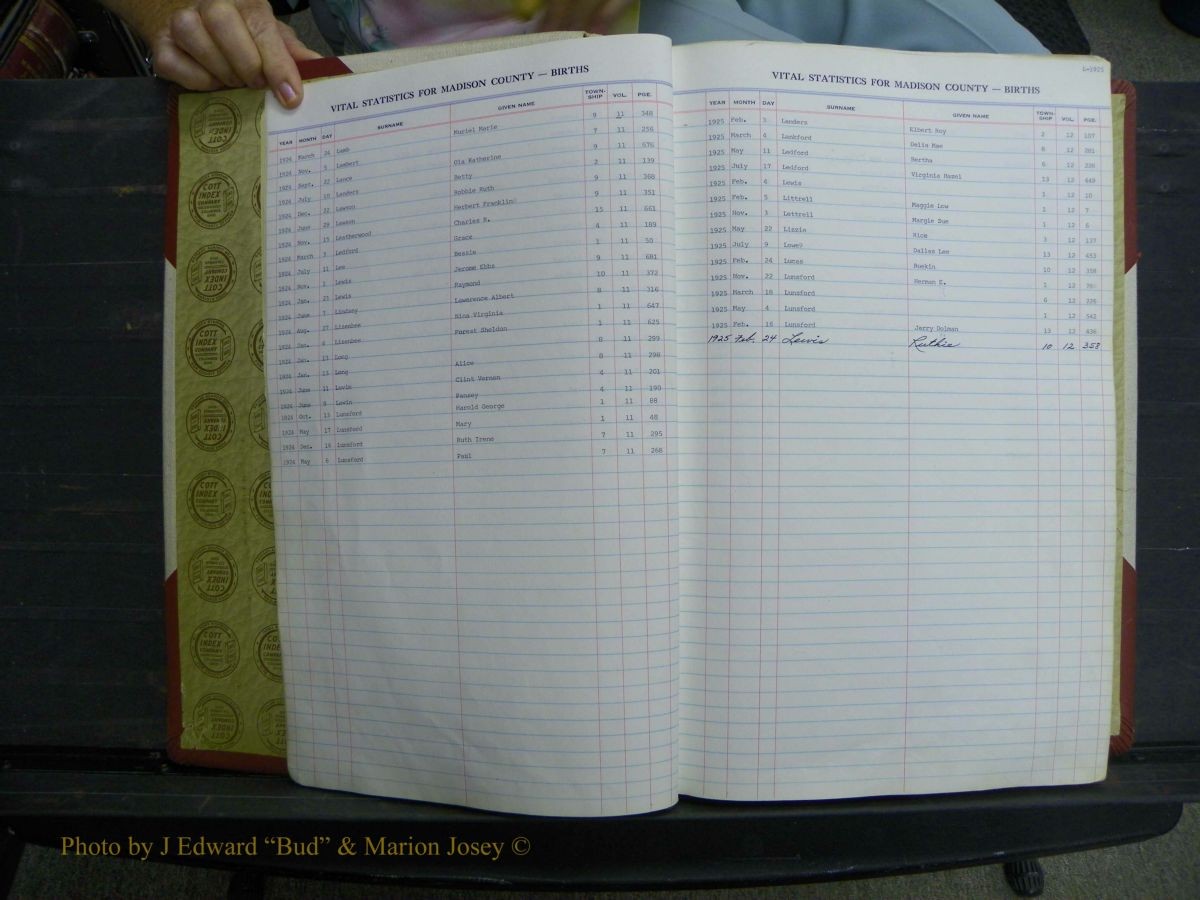 VITAL STATISTICS FOR MADISON COUNTY — BIRTHS
YEAR MONTH DAY SURNAME GIVEN NAME TOWN-SHIP VOL. PGE.
1924 March 24 Lamb Muriel Marie 9 11 348
1924 Nov. 3 Lambert 7 11 256
1924 Sept. 22 Lance Ola Katherine 9 11 676
1924 July 10 Landers Betty 2 11 139
1924 Dec. 22 Lawson Robbie Ruth 9 11 368
1924 June 29 Lawson Herbert Franklin 9 11 351
1924 Nov. 15 Leatherwood Charles R. 15 11 661
1924 March 3 Ledford Grace 4 11 189
1924 July 11 Lee Bessie 1 11 50
1924 Nov. 1 Lewis Jerome Ebbs 9 11 681
1924 Jan. 21 Lewis Raymond 10 11 372
1924 June 7 Lindsey Lawerence Albert 8 11 316
1924 Aug. 27 Lisenbee Nina Virginia 1 11 647
1924 Jan. 4 Lisenbee Forest Sheldon 1 11 625
1924 Jan. 13 Long 8 11 299
1924 Jan. 13 Long Alice 8 11 298
1924 June 11 Lovin Clint Vernon 4 11 201
1924 June 9 Lewin Pansey 4 11 199
1924 Oct. 13 Lunsford Harold George 1 11 88
1924 May 17 Lunsford Mary 1 11 48
1924 Dec. 16 Lunsford Ruth Irene 7 11 295
1924 May 6 Lunsford Paul 7 11 268
L-1925
VITAL STATISTICS FOR MADISON COUNTY — BIRTHS
YEAR MONTH DAY SURNAME GIVEN NAME TOWN-SHIP VOL. PGE.
1925 Feb. 3 Landers Elbert Roy 2 12 107
1925 March 4 Lankford Delia Mae 8 12 281
1925 May 11 Ledford Bertha 6 12 228
1925 July 17 Ledford Virginia Hazel 13 12 449
1925 Feb. 4 Lewis 1 12 10
1925 Feb. 5 Littrell Maggie Low 1 12 7
1925 Nov. 3 Lettrell Margie Due 1 12 6
1925 May 22 Lizzie Nick 3 12 137
1925 July 9 Lowe? Dallas Lee 13 12 453
1925 Feb. 24 Lucas Ruekin 10 12 358
1925 Nov. 22 Lunsford Herman E. 1 12 70
1925 March 18 Lunsford 6 12 226
1925 May 4 Lunsford 1 12 542
1925 Feb. 16 Lunsford Jerry Dolman 13 12 436
1925 Feb. 24 Lewis Ruthie 10 12 358
COTT INDEX COMPANY
Photo by J Edward “Bud” & Marion Josey ©